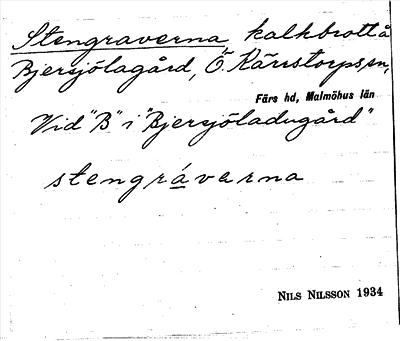 Stengraverna, kalkbrott å
Bjersjölagård, Ö. Kärrstorps sn,
Färs hd, Malmöhus län
Vid "B" i "Bjersjöladugård"
stengráverna
NILS NILSSON 1934